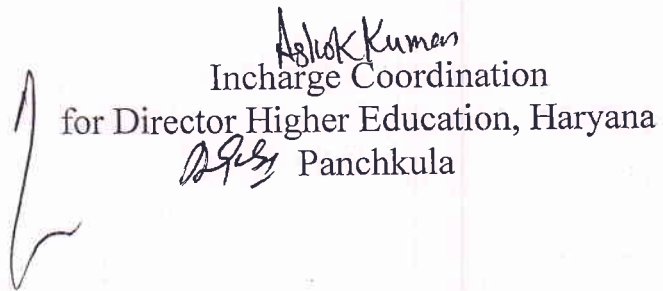 Ashok Kumar
Incharge Coordination
for Director Higher Education, Haryana
Panchkula